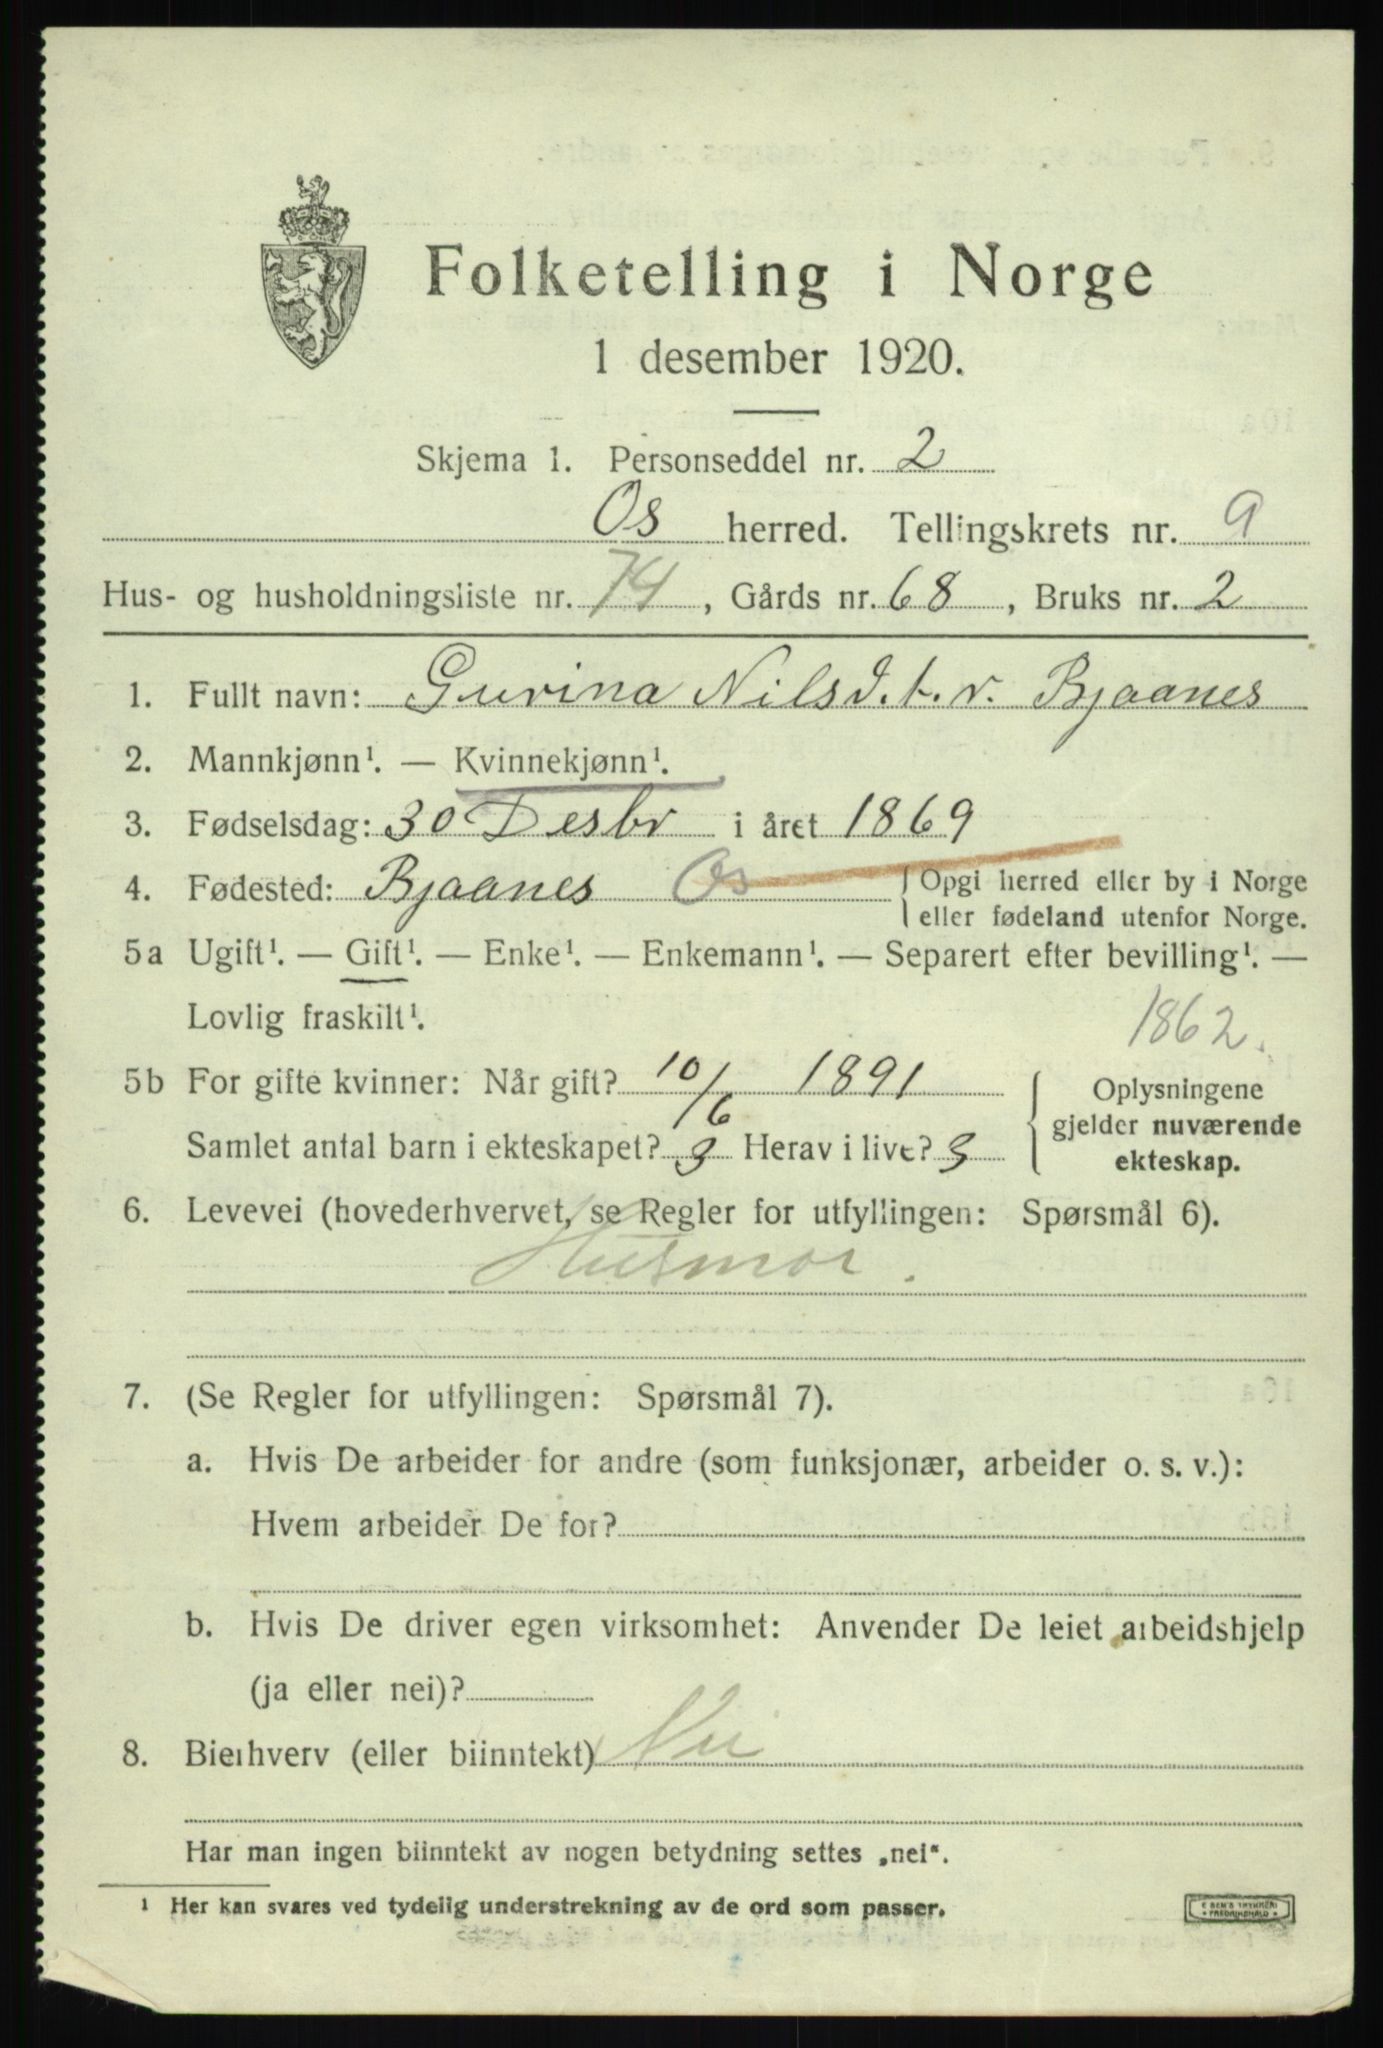 Folketelling i Norge
1 desember 1920.
Skjema 1. Personseddel nr. 2
Os herred. Tellingskrets nr. 9
Hus- og husholdningsliste nr. 74, Gårds nr. 68, Bruks nr. 2
1. Fullt navn: Gurina Nilsd.t.r. Bjaanes
2. Mannkjønn¹. — Kvinnekjønn¹.
3. Fødselsdag: 30 Desbr i året 1869
4. Fødested: Bjaanes Os { Opgi herred eller by i Norge
eller fødeland utenfor Norge.
5a Ugift¹. — Gift¹. — Enke¹. — Enkemann¹. — Separert efter bevilling¹. —
Lovlig fraskilt¹.
1862.
5b For gifte kvinner: Når gift? 10/6 1891
Samlet antal barn i ekteskapet? 3 Herav i live? 3
{ Oplysningene
gjelder nuværende
ekteskap.
6. Levevei (hovederhvervet, se Regler for utfyllingen: Spørsmål 6).
Husmor.
7. (Se Regler for utfyllingen: Spørsmål 7).
a. Hvis De arbeider for andre (som funksjonær, arbeider o. s. v.):
Hvem arbeider De for?
b. Hvis De driver egen virksomhet: Anvender De leiet arbeidshjelp
(ja eller nei)?
8. Bierhverv (eller biinntekt) Nei
Har man ingen biinntekt av nogen betydning settes „nei“.
¹ Her kan svares ved tydelig understrekning av de ord som passer.